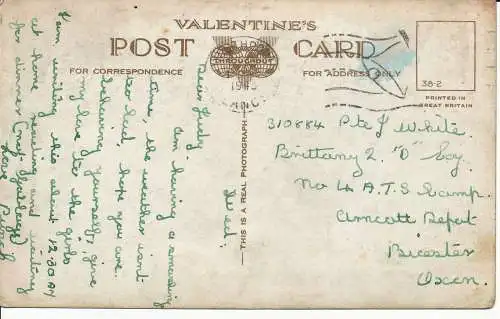 VALENTINE'S
POST CARD
THROUGHOUT
FOR CORRESPONDENCE
FOR ADDRESS ONLY
38-2
PRINTED IN
GREAT BRITAIN
THIS IS A REAL PHOTOGRAPH
Wed.
Dear Judy
Am having a smashing
time, the weather isnt
too bad, hope you are
behaving yourself, give
my love to the girls
I am writing this about 12.30 AM
at home resting and waiting
for dinner (not
Love
310884 Pte J White.
Brittany 2 "D" Coy
No 4 A.T.S Camp
Arncott Depot
Bicester
Oxon.